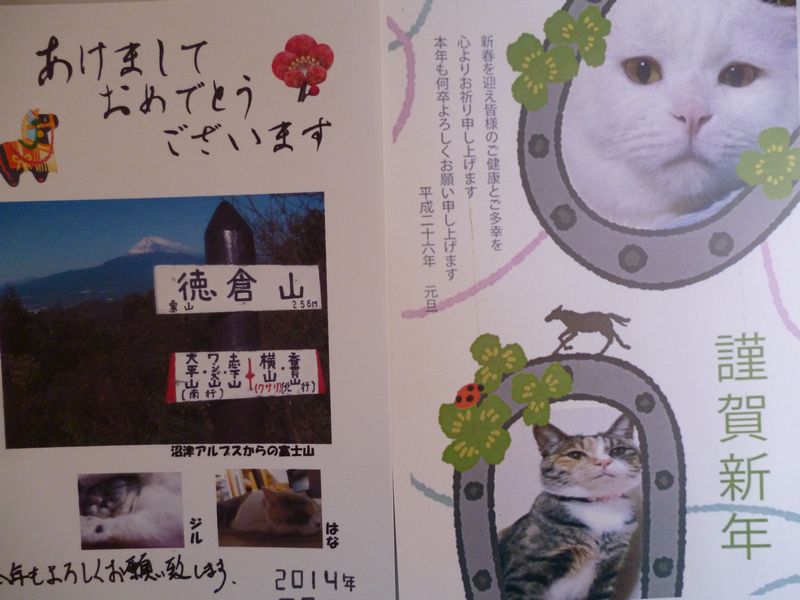 あけまして
おめでとう
ございます
徳倉山
象山
256m
大平山・ワシズ山・志下山
(南行)
横山・香貫山
(クサリ)(北行)
沼津アルプスからの富士山
ジル
はな
今年もよろしくお願い致します.
2014年
新春を迎え皆様のご健康とご多幸を
心よりお祈り申し上げます
本年も何卒よろしくお願い申し上げます
平成二十六年 元旦
謹賀新年